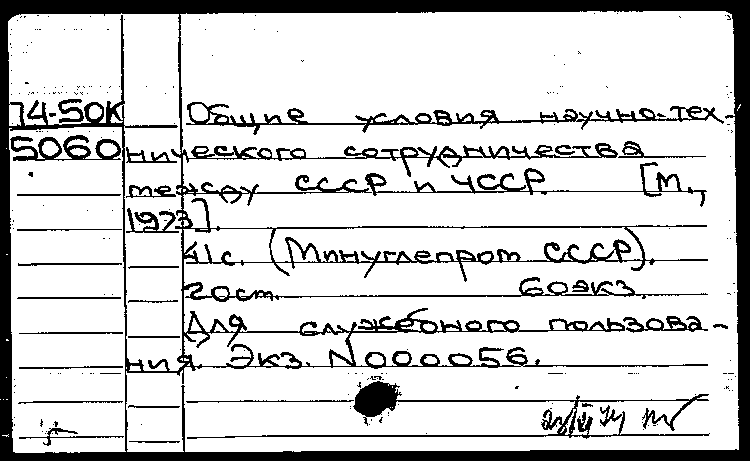 74-50К Общие условия научно-тех-
5060 нического сотрудничества
между СССР и ЧССР. [М.,
1973].
41с. (Минуглепром СССР).
20ст. 60экз.
Для служебного пользова-
ния. Экз. N000056.